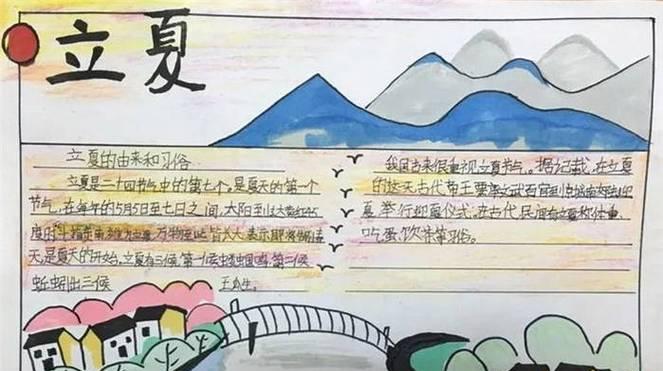 立夏
立夏的由来和习俗
立夏是二十四节气中的第七个。是夏天的第一个
节气,在每年的5月5日至七日之间,太阳到达黄经45
度时斗指东南维为立夏万物至此皆大
天,是夏天的开始,立夏有三候第一候蝼蝈鸣第二候
蚯蚓出三候 王瓜生。
我国古来很重视立夏节气。据记载,在立夏
的这天古代帝王要率文武百官到京城南郊去迎
夏举行迎夏仪式。在古代民间有立夏称体重、
吃蛋、饮茶等习俗。